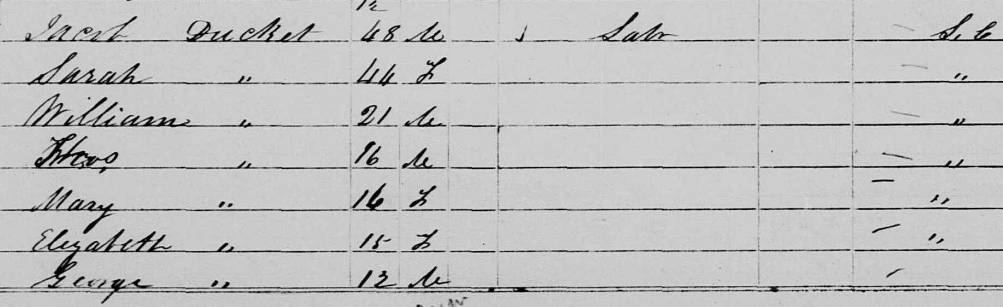 Jacob Ducket 48 M Lab S.C
Sarah " 44 F "
William " 21 M "
Thos, " 16 M "
Mary " 16 F "
Elizabeth " 15 F "
George " 12 M